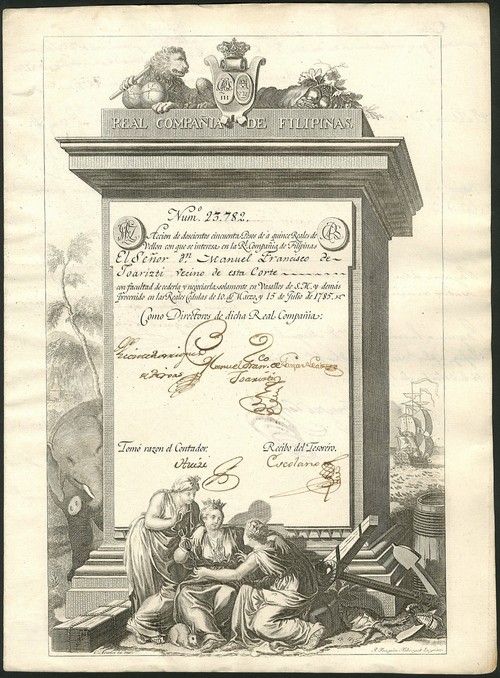 REAL COMPAÑIA DE FILIPINAS.
III
Num.º 23.782.
Accion de doscientos cincuenta Pesos de á quince Reales de
Vellon con que se interesa en la Rl. Compañia de Filipinas
El Señor Dn. Manuel Francisco de
Joarizti vecino de esta Corte
con facultad de cederla y negociarla solamente en Vasallos de S.M. y demás
prevenido en las Reales Cédulas de 10. de Marzo, y 15 de Julio de 1785.
Como Directores de dicha Real Compañia:
Manuel Fran.co de
Joarizti
Tomó razon el Contador.
Recibo del Tesorero.
Escolano